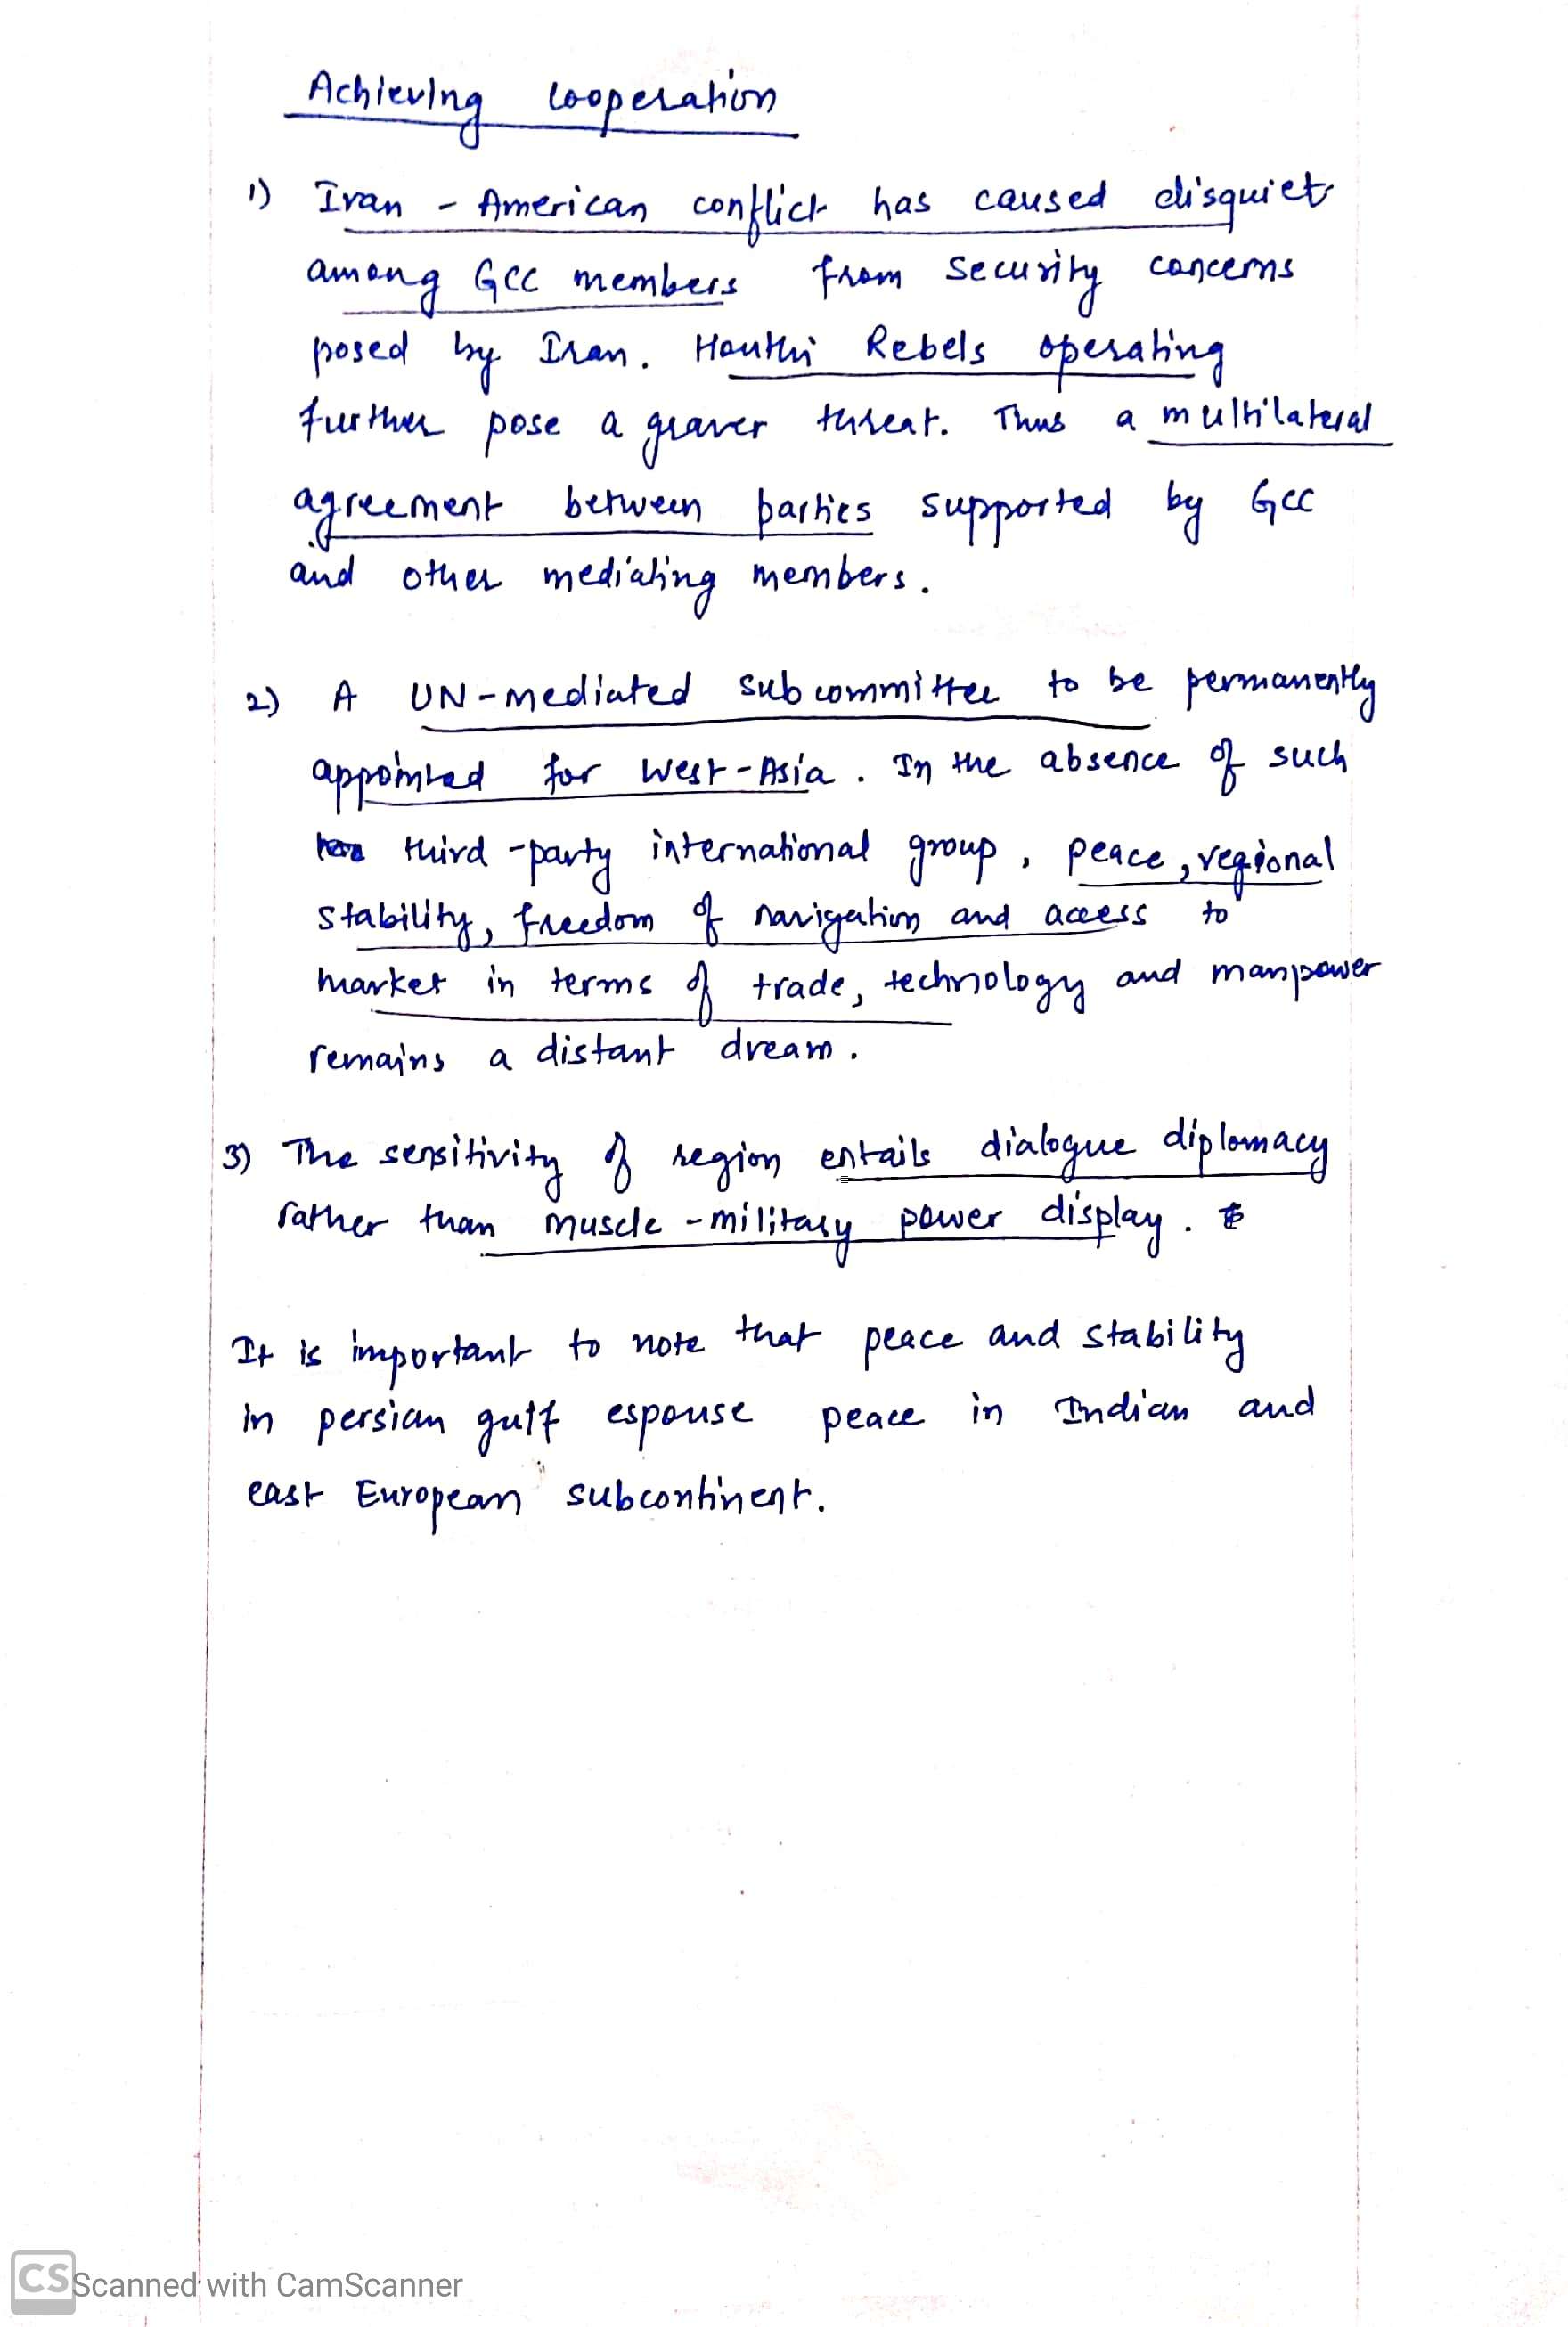 Achieving cooperation
1) Iran - American conflict has caused disquiet
among GCC members from security concerns
posed by Iran. Houthi Rebels operating
further pose a graver threat. Thus a multilateral
agreement between parties supported by GCC
and other mediating members.
2) A UN-mediated subcommittee to be permanently
appointed for West-Asia. In the absence of such
third-party international group, peace, regional
stability, freedom of navigation and access to
market in terms of trade, technology and manpower
remains a distant dream.
3) The sensitivity of region entails dialogue diplomacy
rather than muscle-military power display.
It is important to note that peace and stability
in persian gulf espouse peace in Indian and
east European subcontinent.
CS Scanned with CamScanner